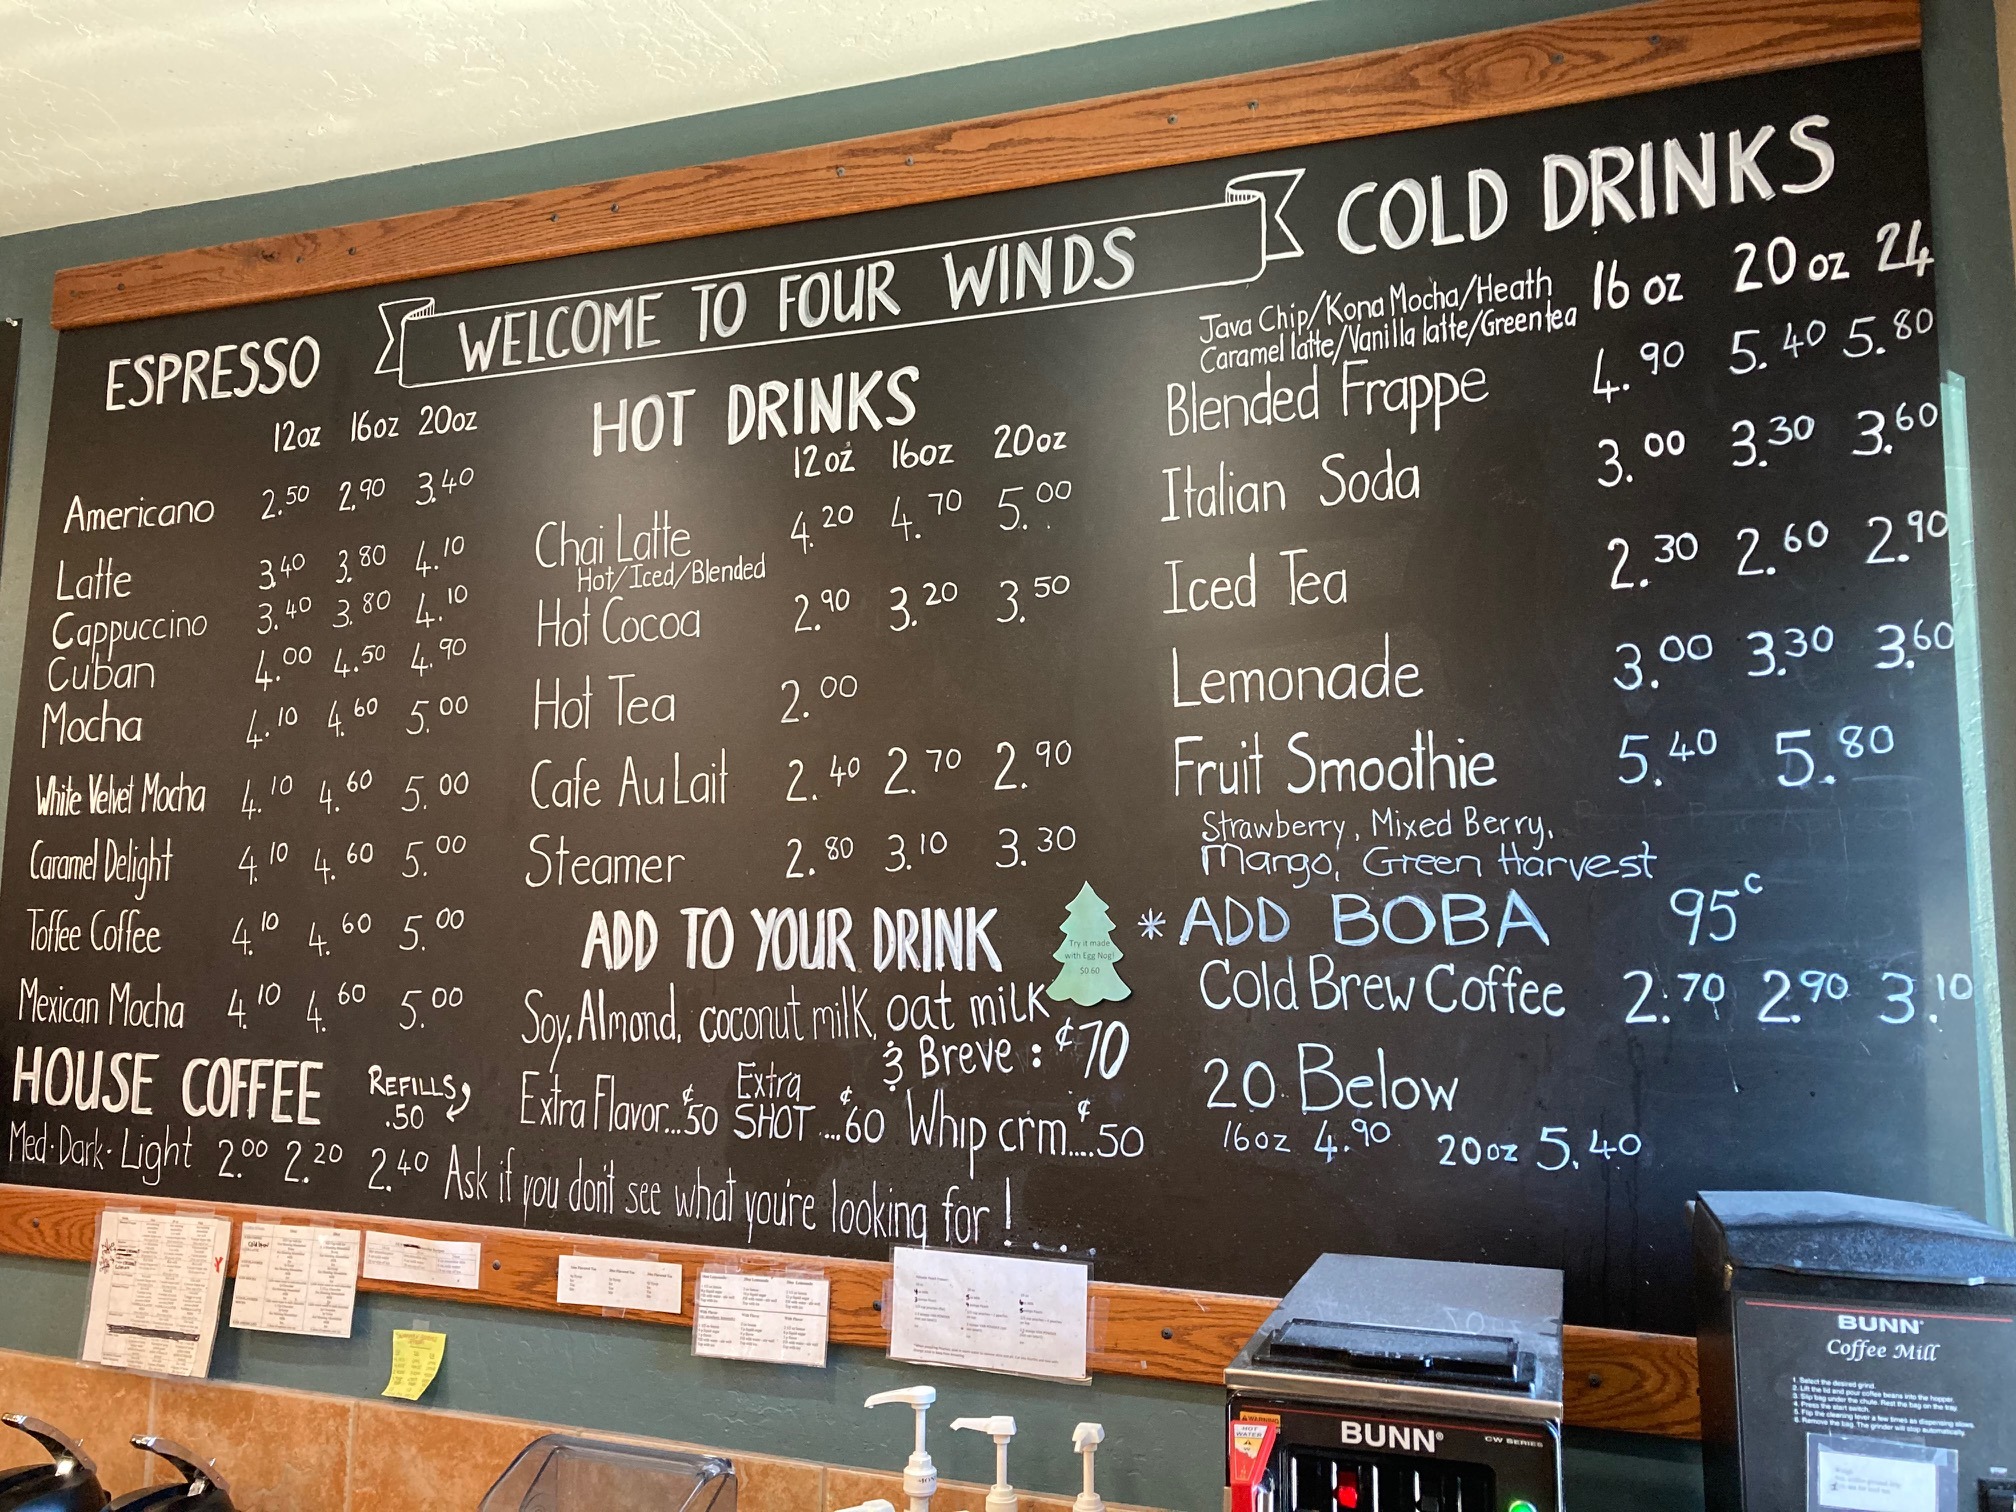 WELCOME TO FOUR WINDS
ESPRESSO
12oz 16oz 20oz
Americano 2.50 2.90 3.40
Latte 3.40 3.80 4.10
Cappuccino 3.40 3.80 4.10
Cuban 4.00 4.50 4.90
Mocha 4.10 4.60 5.00
White Velvet Mocha 4.10 4.60 5.00
Caramel Delight 4.10 4.60 5.00
Toffee Coffee 4.10 4.60 5.00
Mexican Mocha 4.10 4.60 5.00
HOUSE COFFEE
REFILLS
.50
Med · Dark · Light 2.00 2.20 2.40
HOT DRINKS
12oz 16oz 20oz
Chai Latte 4.20 4.70 5.00
Hot/Iced/Blended
Hot Cocoa 2.90 3.20 3.50
Hot Tea 2.00
Cafe Au Lait 2.40 2.70 2.90
Steamer 2.80 3.10 3.30
ADD TO YOUR DRINK
Soy, Almond, coconut milk, oat milk
& Breve : ¢70
Extra Flavor...¢50 Extra SHOT...¢60 Whip crm....¢50
Ask if you don't see what you're looking for!...
Try it made
with Egg Nog!
$0.60
COLD DRINKS
16 oz 20 oz 24
Java Chip/Kona Mocha/Heath
Caramel latte/Vanilla latte/Green tea
Blended Frappe 4.90 5.40 5.80
Italian Soda 3.00 3.30 3.60
Iced Tea 2.30 2.60 2.90
Lemonade 3.00 3.30 3.60
Fruit Smoothie 5.40 5.80
Strawberry, Mixed Berry,
Mango, Green Harvest
* ADD BOBA 95c
Cold Brew Coffee 2.70 2.90 3.10
20 Below
16oz 4.90 20oz 5.40
BUNN®
CW SERIES
WARNING
HOT
WATER
BUNN®
Coffee Mill
1. Select the desired grind.
2. Lift the lid and pour coffee beans into the hopper.
3. Slip bag under the chute. Rest the bag on the tray.
4. Press the start switch.
5. Flip the cleaning lever a few times as dispensing slows.
6. Remove the bag. The grinder will stop automatically.